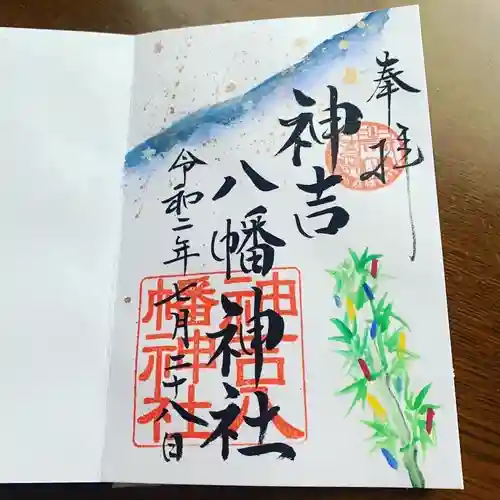 奉拝
神吉
八幡神社
令和二年七月二十八日
神吉八
幡神社